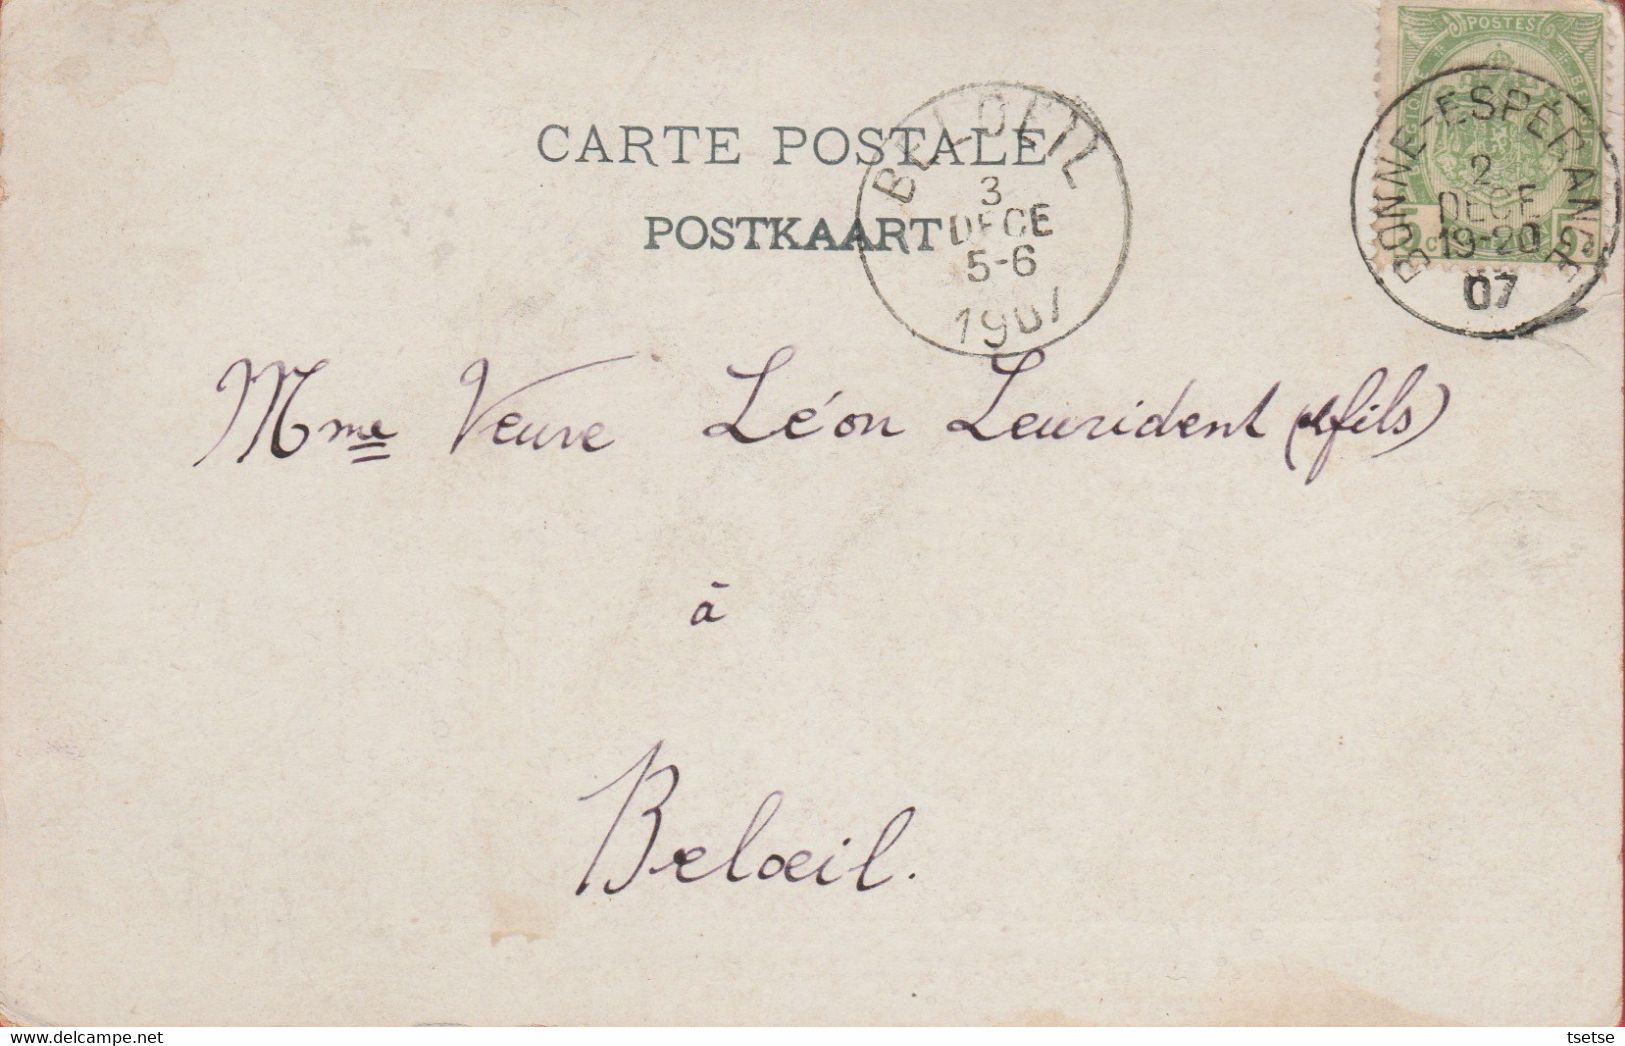 POSTES
BONNE-ESPÉRANCE
2
DECE
19-20
07
BELOEIL
3
DECE
5-6
1907
CARTE POSTALE
POSTKAART
Mme Veuve Léon Leurident (& fils)
à
Beloeil.
tsetse